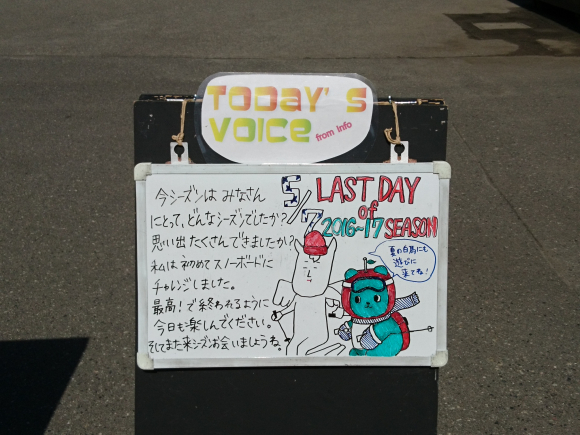 TODay's
VOICE
from Info
今シーズンは みなさん
にとって、どんなシーズンでしたか?
思い出たくさんできましたか?
私は初めてスノーボードに
チャレンジしました。
最高!で終われるように
今日も楽しんでください。
そしてまた来シーズンお会いしましょうね。
5/7
LAST DAY
of
2016~17 SEASON
夏の白馬にも
遊びに
来てね!